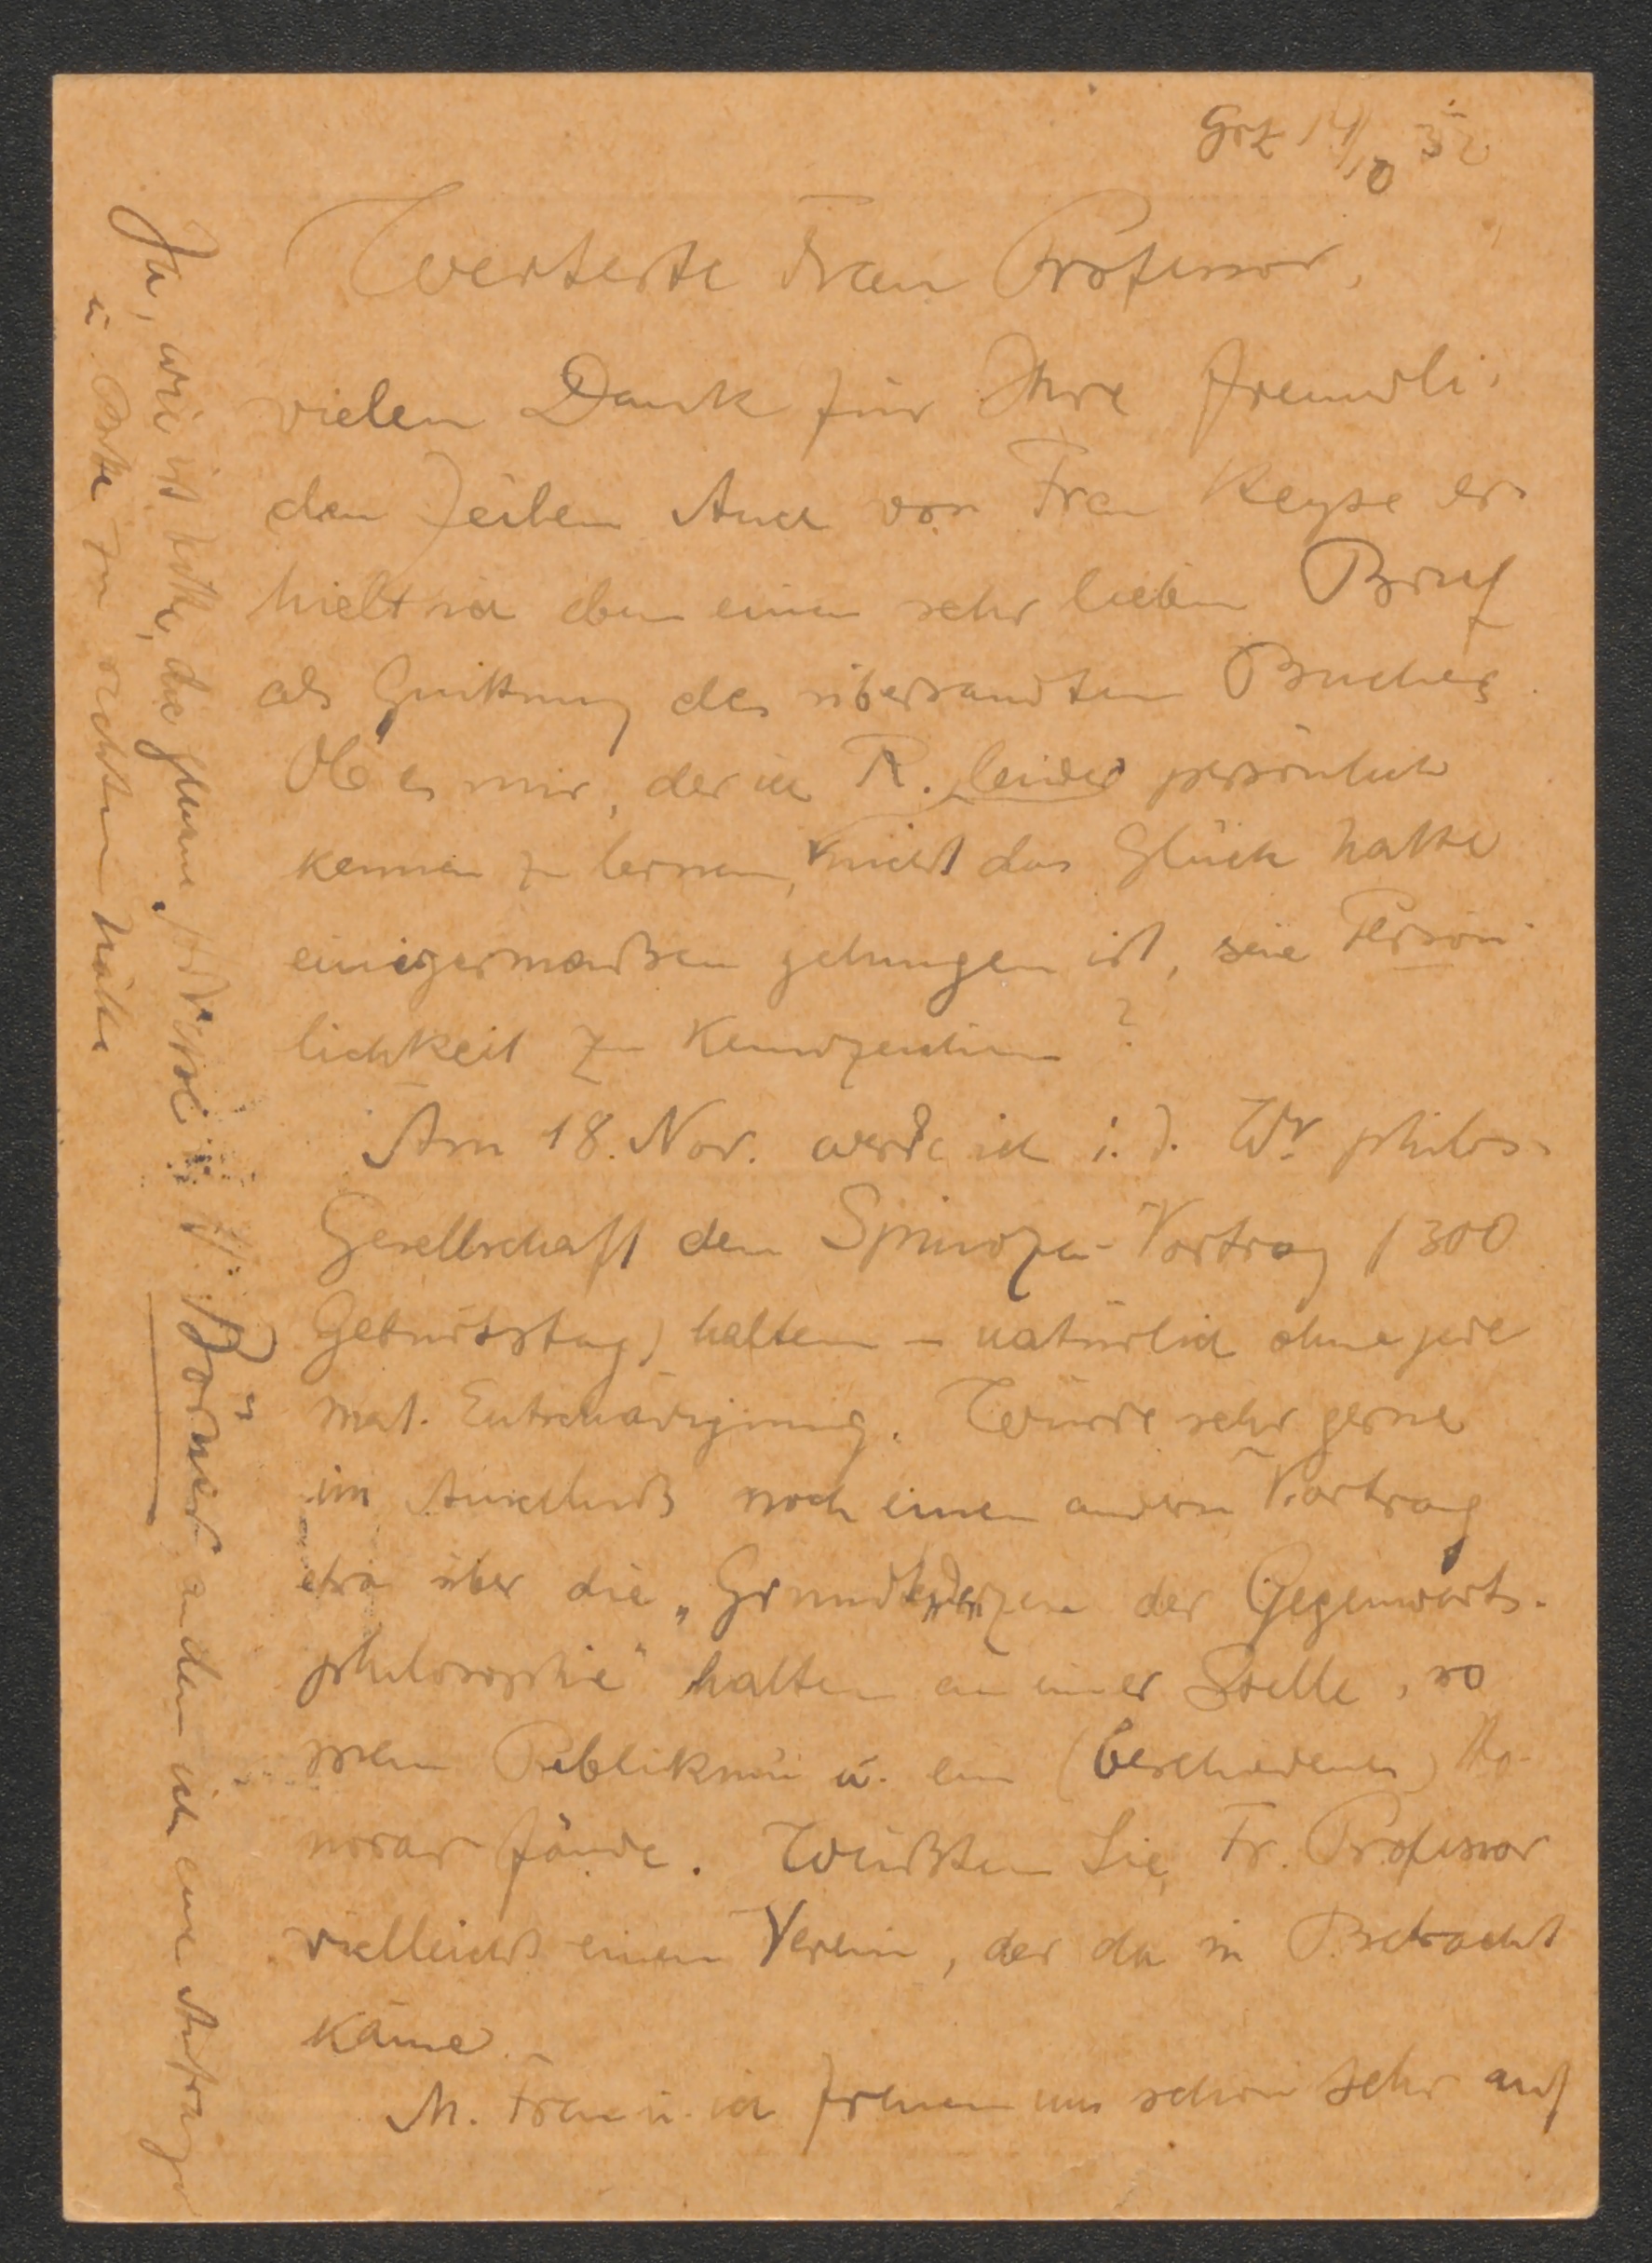 Grz 14/10 32
Werteste Frau Professor,
vielen Dank für Ihre freundli-
chen Zeilen Auch von Frau er-
hielt ich eben einen sehr lieben Brief
als Quittung des übersandten Buches.
Ob es mir, der ich R. leider persönlich
kennen zu lernen, nicht das Glück hatte
einigermaßen gelungen ist, seine Persön-
lichkeit zu kennzeichnen?
Am 18. Nov. werde ich i. d. Wr philos.
Gesellschaft den Spinoza-Vortrag (300
Geburtstag) halten – natürlich ohne jede
mat. Entschädigung. Würde sehr gerne
im Anschluß noch einen andern Vortrag
etwa über die „Grundtendenzen der Gegenwarts-
philosophie" halten an einer Stelle, wo
man Publikum u. ein (bescheidenes) Ho-
norar fände. Wüßten Sie, Fr. Professor
vielleicht einen Verein, der da in Betracht
käme.–
M. Frau u. ich freuen uns schon sehr auf
Ja, wie ist bitte, die genaue Adresse Börner an den ich eine Anfrage
u. Bitte zu richten hätte